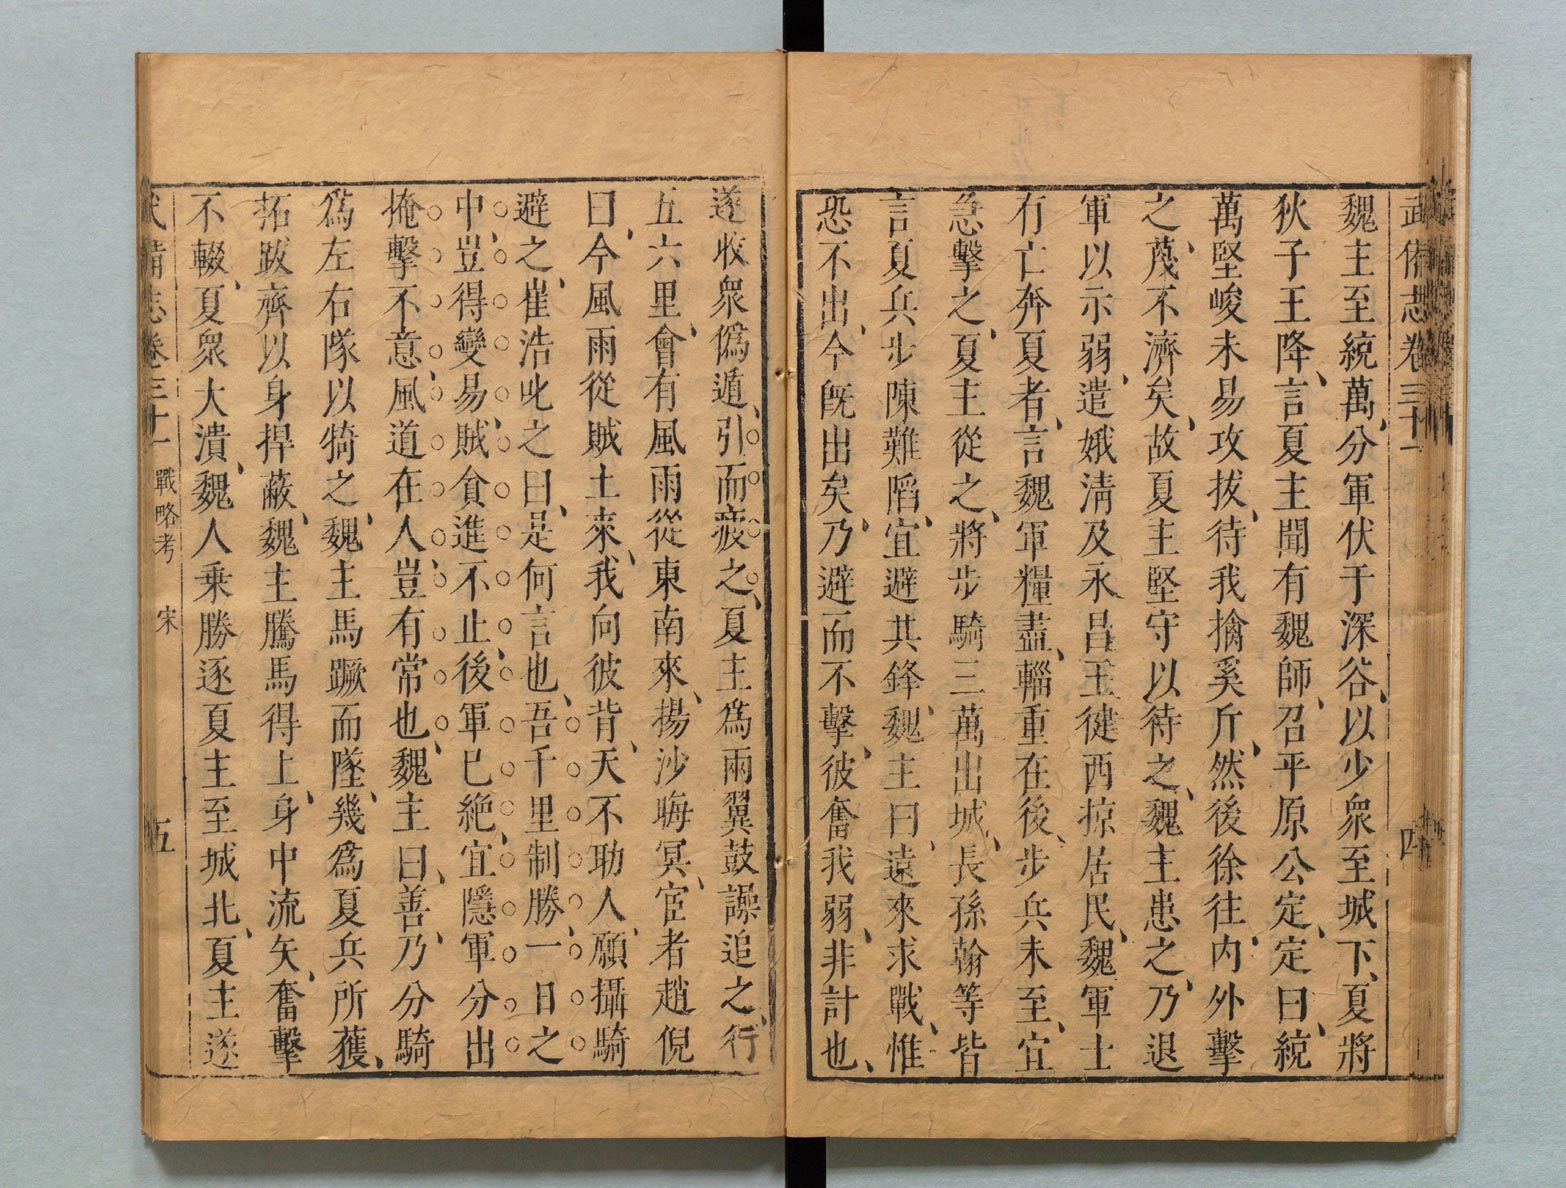 武備志卷三十一
四
魏主至統萬、分軍伏于深谷、以少衆至城下、夏將
狄子玉降、言夏主聞有魏師、召平原公定、定曰、統
萬堅峻未易攻拔、待我擒奚斤、然後徐往、內外擊
之、蔑不濟矣、故夏主堅守以待之、魏主患之、乃退
軍以示弱、遣娥清及永昌王健西掠居民、魏軍士
有亡奔夏者、言魏軍糧盡、輜重在後、步兵未至、宜
急擊之、夏主從之、將步騎三萬出城、長孫翰等皆
言夏兵步陳難陷、宜避其鋒、魏主曰、遠來求戰、惟
恐不出、今既出矣、乃避而不擊、彼奮我弱、非計也、
遂收衆僞遁、引而疲之、夏主爲兩翼鼓譟追之、行
五六里、會有風雨從東南來、揚沙晦冥、宦者趙倪
曰、今風雨從賊土來、我向彼背、天不助人、願攝騎
避之、崔浩叱之曰、是何言也、吾千里制勝、一日之
中、豈得變易、賊貪進不止、後軍已絕、宜隱軍分出
掩擊不意、風道在人、豈有常也、魏主曰、善、乃分騎
爲左右隊以犄之、魏主馬蹶而墜、幾爲夏兵所獲、
拓跋齊以身捍蔽、魏主騰馬得上、身中流矢、奮擊
不輟、夏衆大潰、魏人乗勝逐夏主至城北、夏主遂
武備志卷三十一 戰略考 宋 五